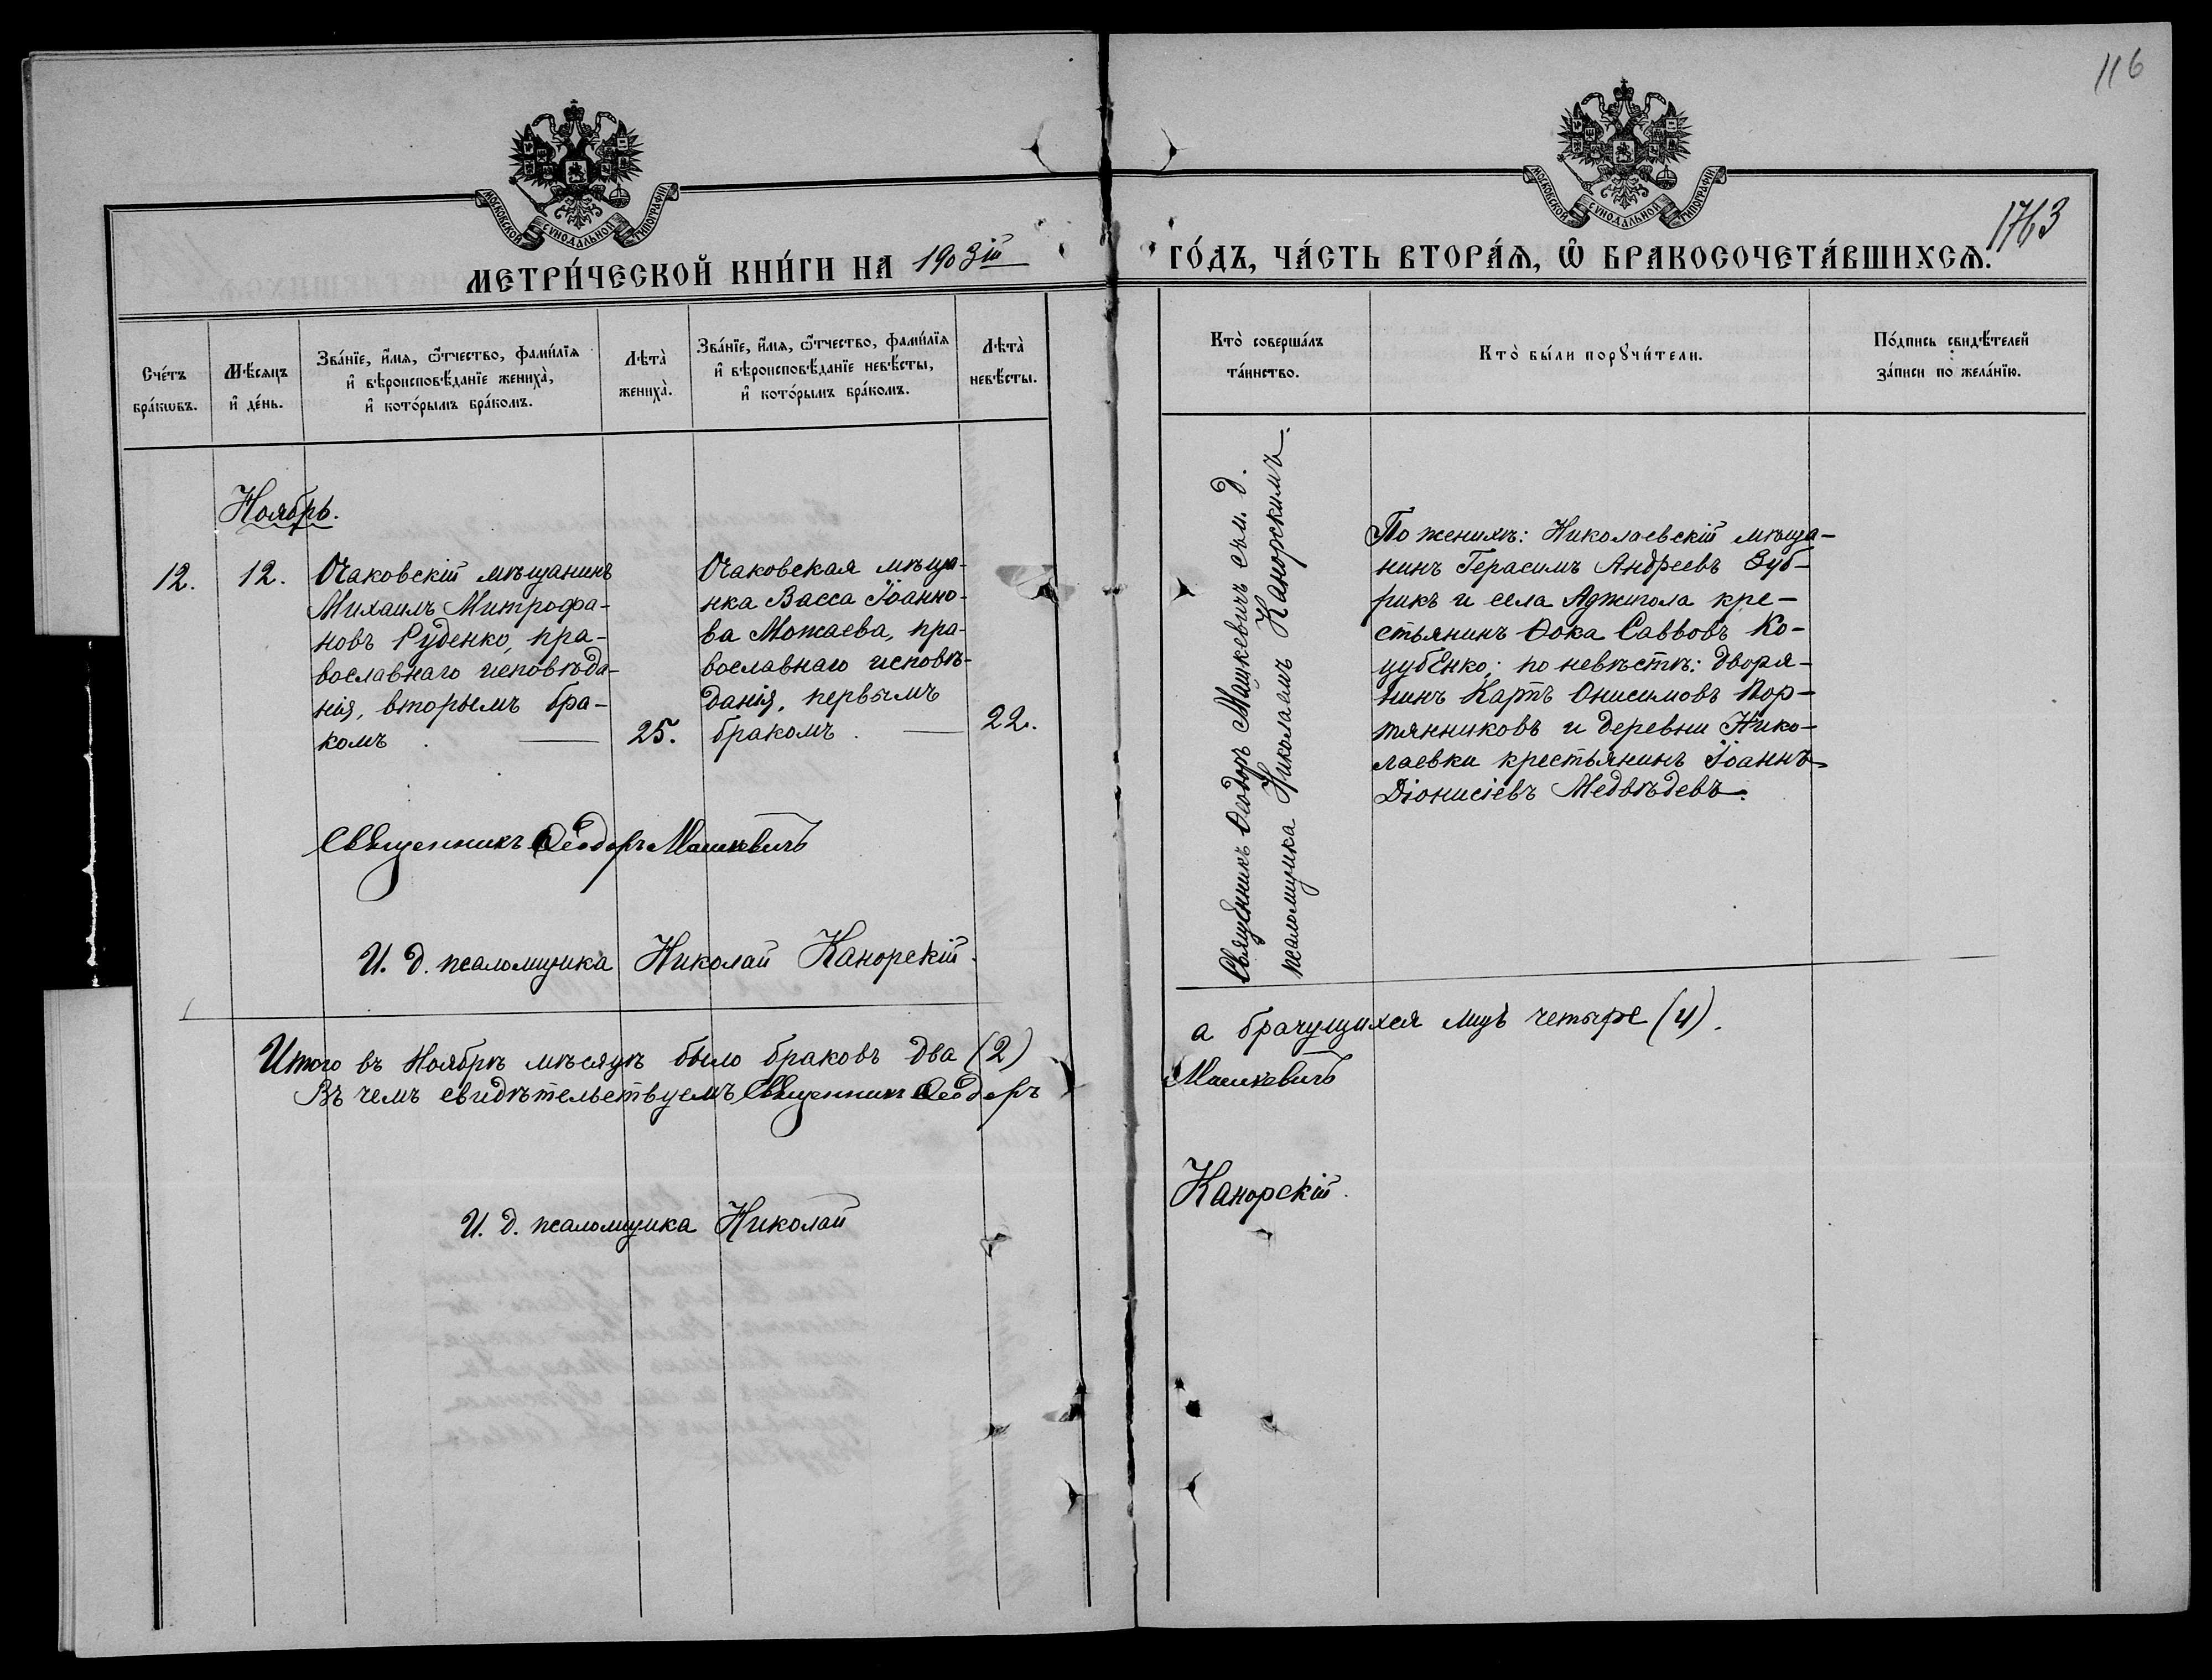 116
МОСКОВСКОЙ СѴНОДАЛЬНОЙ ТИПОГРАФІИ
МОСКОВСКОЙ СѴНОДАЛЬНОЙ ТИПОГРАФІИ
1763
МЕТРИ́ЧЕСКОЙ КНИ́ГИ НА 1903ій
ГО́ДЪ, ЧА́СТЬ ВТОРА́Ѧ, Ѽ БРАКОСОЧЕТА́ВШИХСѦ.
Сче́тъ бра́кѡвъ.
Мѣ́сяцъ и҆ де́нь.
Зва́нїе, и҆́мѧ, ѻ҆́тчество, фами́лїѧ и҆ вѣроисповѣ́данїе жениха̀, и҆ кото́рымъ бра́комъ.
Лѣта̀ жениха̀.
Зва́нїе, и҆́мѧ, ѻ҆́тчество, фами́лїѧ и҆ вѣроисповѣ́данїе невѣ́сты, и҆ кото́рымъ бра́комъ.
Лѣта̀ невѣ́сты.
Кто̀ соверша́лъ та́инство.
Кто̀ бы́ли порꙋчи́тели.
По́дпись свидѣ́телей за́писи по жела́нїю.
Ноябрь.
12.
12.
Очаковскій мѣщанинъ
Михаилъ Митрофа-
новъ Руденко, пра-
вославнаго исповѣда-
нія, вторымъ бра-
комъ.
25.
Очаковская мѣща-
нка Васса Іоанно-
ва Можаева, пра-
вославнаго исповѣ-
данія, первымъ
бракомъ.
22.
Священникъ Ѳеодоръ Машкевичъ съ и. д.
псаломщика Николаемъ Канорскимъ.
По женихѣ: Николаевскій мѣща-
нинъ Герасимъ Андреевъ Зуб-
рикъ и села Аджигола кре-
стьянинъ Ѳока Саввовъ Ко-
цубенко; по невѣстѣ: дворя-
нинъ Карпъ Онисимовъ Пор-
тянниковъ и деревни Нико-
лаевки крестьянинъ Іоаннъ
Діонисіевъ Медвѣдевъ.
Священникъ Ѳеодоръ Машкевичъ
И. д. псаломщика Николай Канорскій.
Итого въ Ноябрѣ мѣсяцѣ было браковъ два (2)
а брачущихся лицъ четыре (4).
Въ чемъ свидѣтельствуемъ Священникъ Ѳеодоръ
Машкевичъ
И. д. псаломщика Николай
Канорскій.